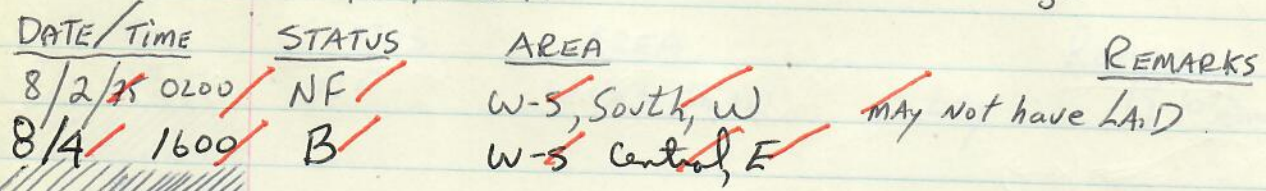 DATE/TIME STATUS AREA REMARKS
8/2/25 0200 NF W-S, South, W MAY Not have LAID.
8/4 1600 B W-S Central, E